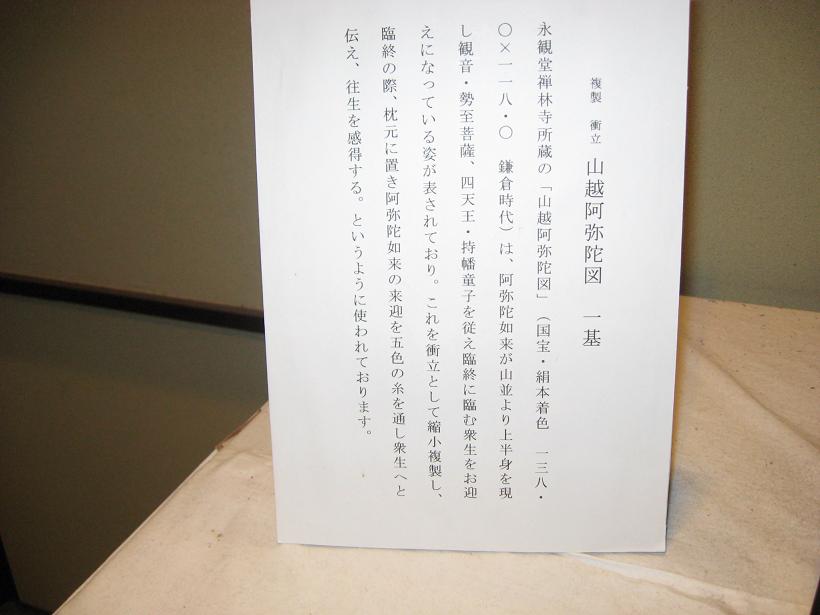 複製　衝立　山越阿弥陀図　一基
永観堂禅林寺所蔵の「山越阿弥陀図」（国宝・絹本着色　一三八・
〇×一一八・〇　鎌倉時代）は、阿弥陀如来が山並より上半身を現
し観音・勢至菩薩、四天王・持幡童子を従え臨終に臨む衆生をお迎
えになっている姿が表されており。これを衝立として縮小複製し、
臨終の際、枕元に置き阿弥陀如来の来迎を五色の糸を通し衆生へと
伝え、往生を感得する。というように使われております。